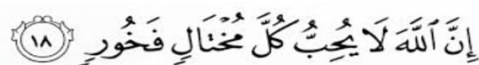 إِنَّ ٱللَّهَ لَا يُحِبُّ كُلَّ مُخْتَالٍ فَخُورٍ ١٨